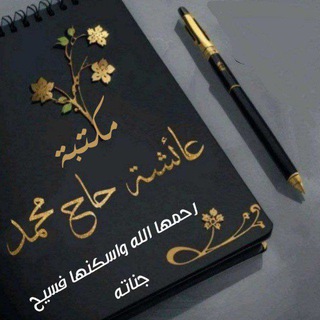 مكتبة
عائشة حاج محمد
رحمها الله واسكنها فسيح
جناته